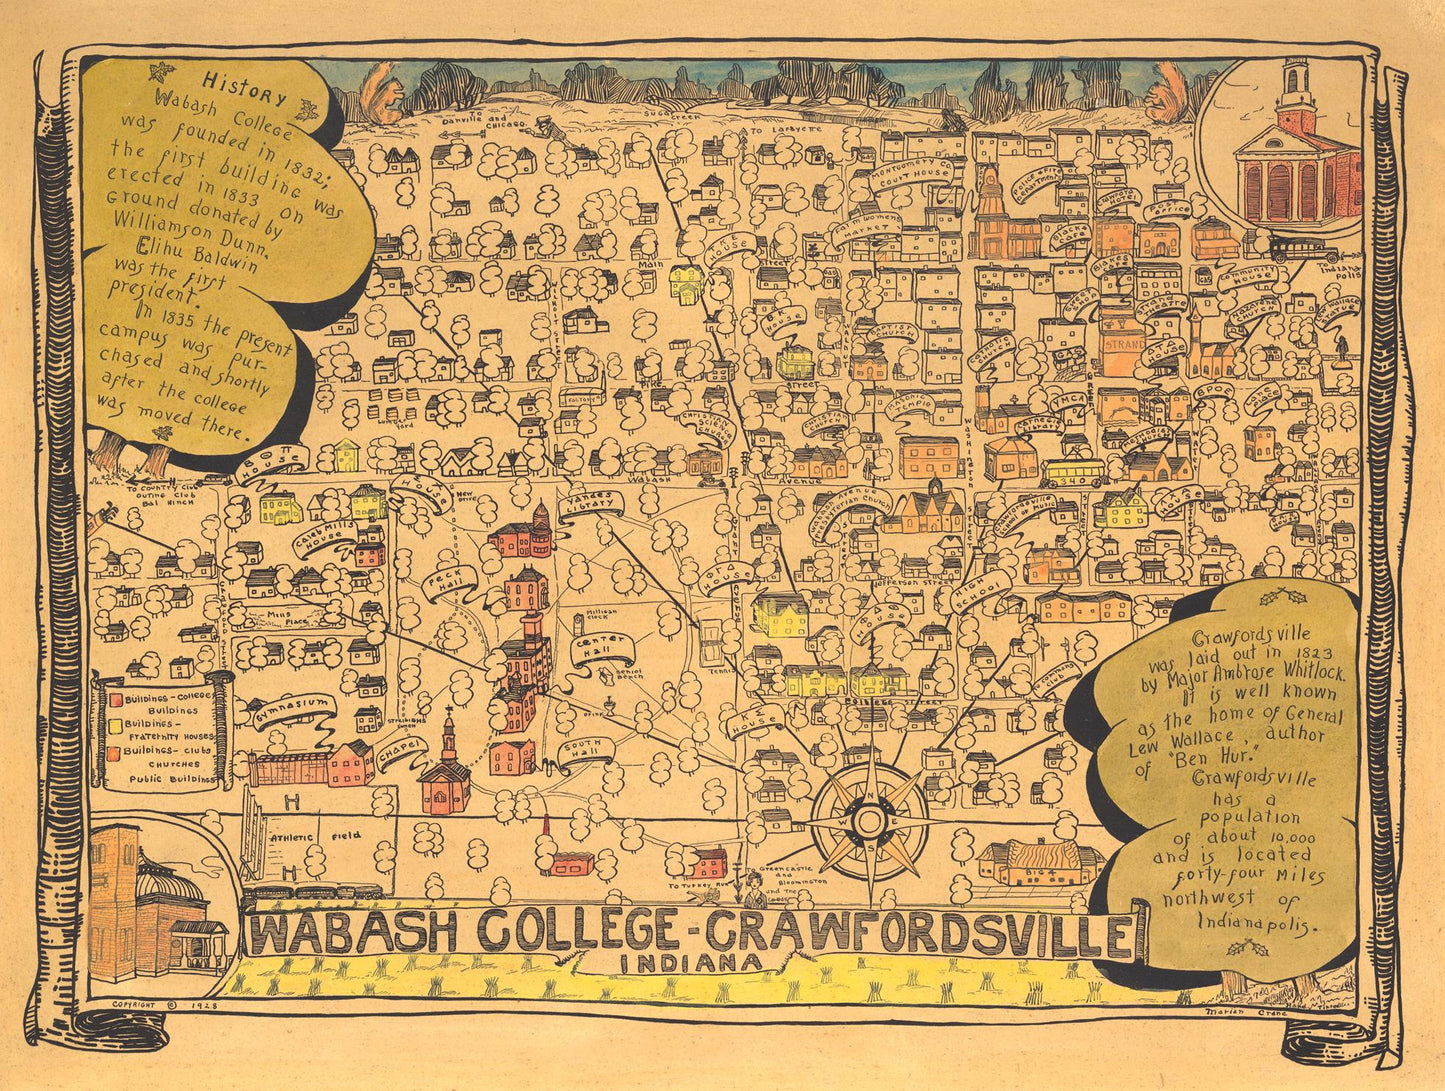 History
Wabash College
was founded in 1832;
the first building was
erected in 1833 on
ground donated by
Williamson Dunn.
Elihu Baldwin
was the first
president.
In 1835 the present
campus was pur-
chased and shortly
after the college
was moved there.
To Danville and
Chicago
Sugar Creek
To Lafayette
Montgomery Co.
Court House
Police + Fire
Departments
Crawford
Hotel
Post
Office
Farm Womens
Market
Black's
Cafe
House
Main
Street
To
Indiana
polis
Community
House
Strand
Theatre
Nazarene
Church
Lew Wallace
Statue
ΦΚΨ
House
Baptist
Church
Catholic
Church
STRAND
House
Walnut
Pike
Street
Factory
Lumber
Yard
Christian
Science
Church
Christian
Church
Masonic
Temple
Carnegie
Library
YMCA
BPOE
Methodist
Church
Wabash
Avenue
Washington
Street
340
ΒΘΠ
House
To Country Club
Outing Club
Ball Hinch
House
New
Drive
Yandes
Library
Caleb Mills
House
Wabash Avenue
Presbyterian Church
Crawfordsville
School of Music
House
Peck
Hall
ΦΓΔ
House
Grant
Avenue
Jefferson Street
High
School
House
Mills
Place
Milligan
Clock
Center
Hall
Senior
Bench
Tennis
To Commons
Club
College Street
Buildings - College
Buildings
Buildings -
Fraternity Houses
Buildings - Clubs
Churches
Public Buildings
Gymnasium
Chapel
Drink
South
Hall
House
N
E
S
W
Athletic Field
Big 4
To Greencastle
and
Bloomington
and the
To Turkey Run
Crawfordsville
was laid out in 1823
by Major Ambrose Whitlock.
It is well known
as the home of General
Lew Wallace, author
of "Ben Hur."
Crawfordsville
has a
population
of about 10,000
and is located
forty-four miles
northwest of
Indianapolis.
WABASH COLLEGE - CRAWFORDSVILLE
INDIANA
COPYRIGHT © 1928
Marian Crane